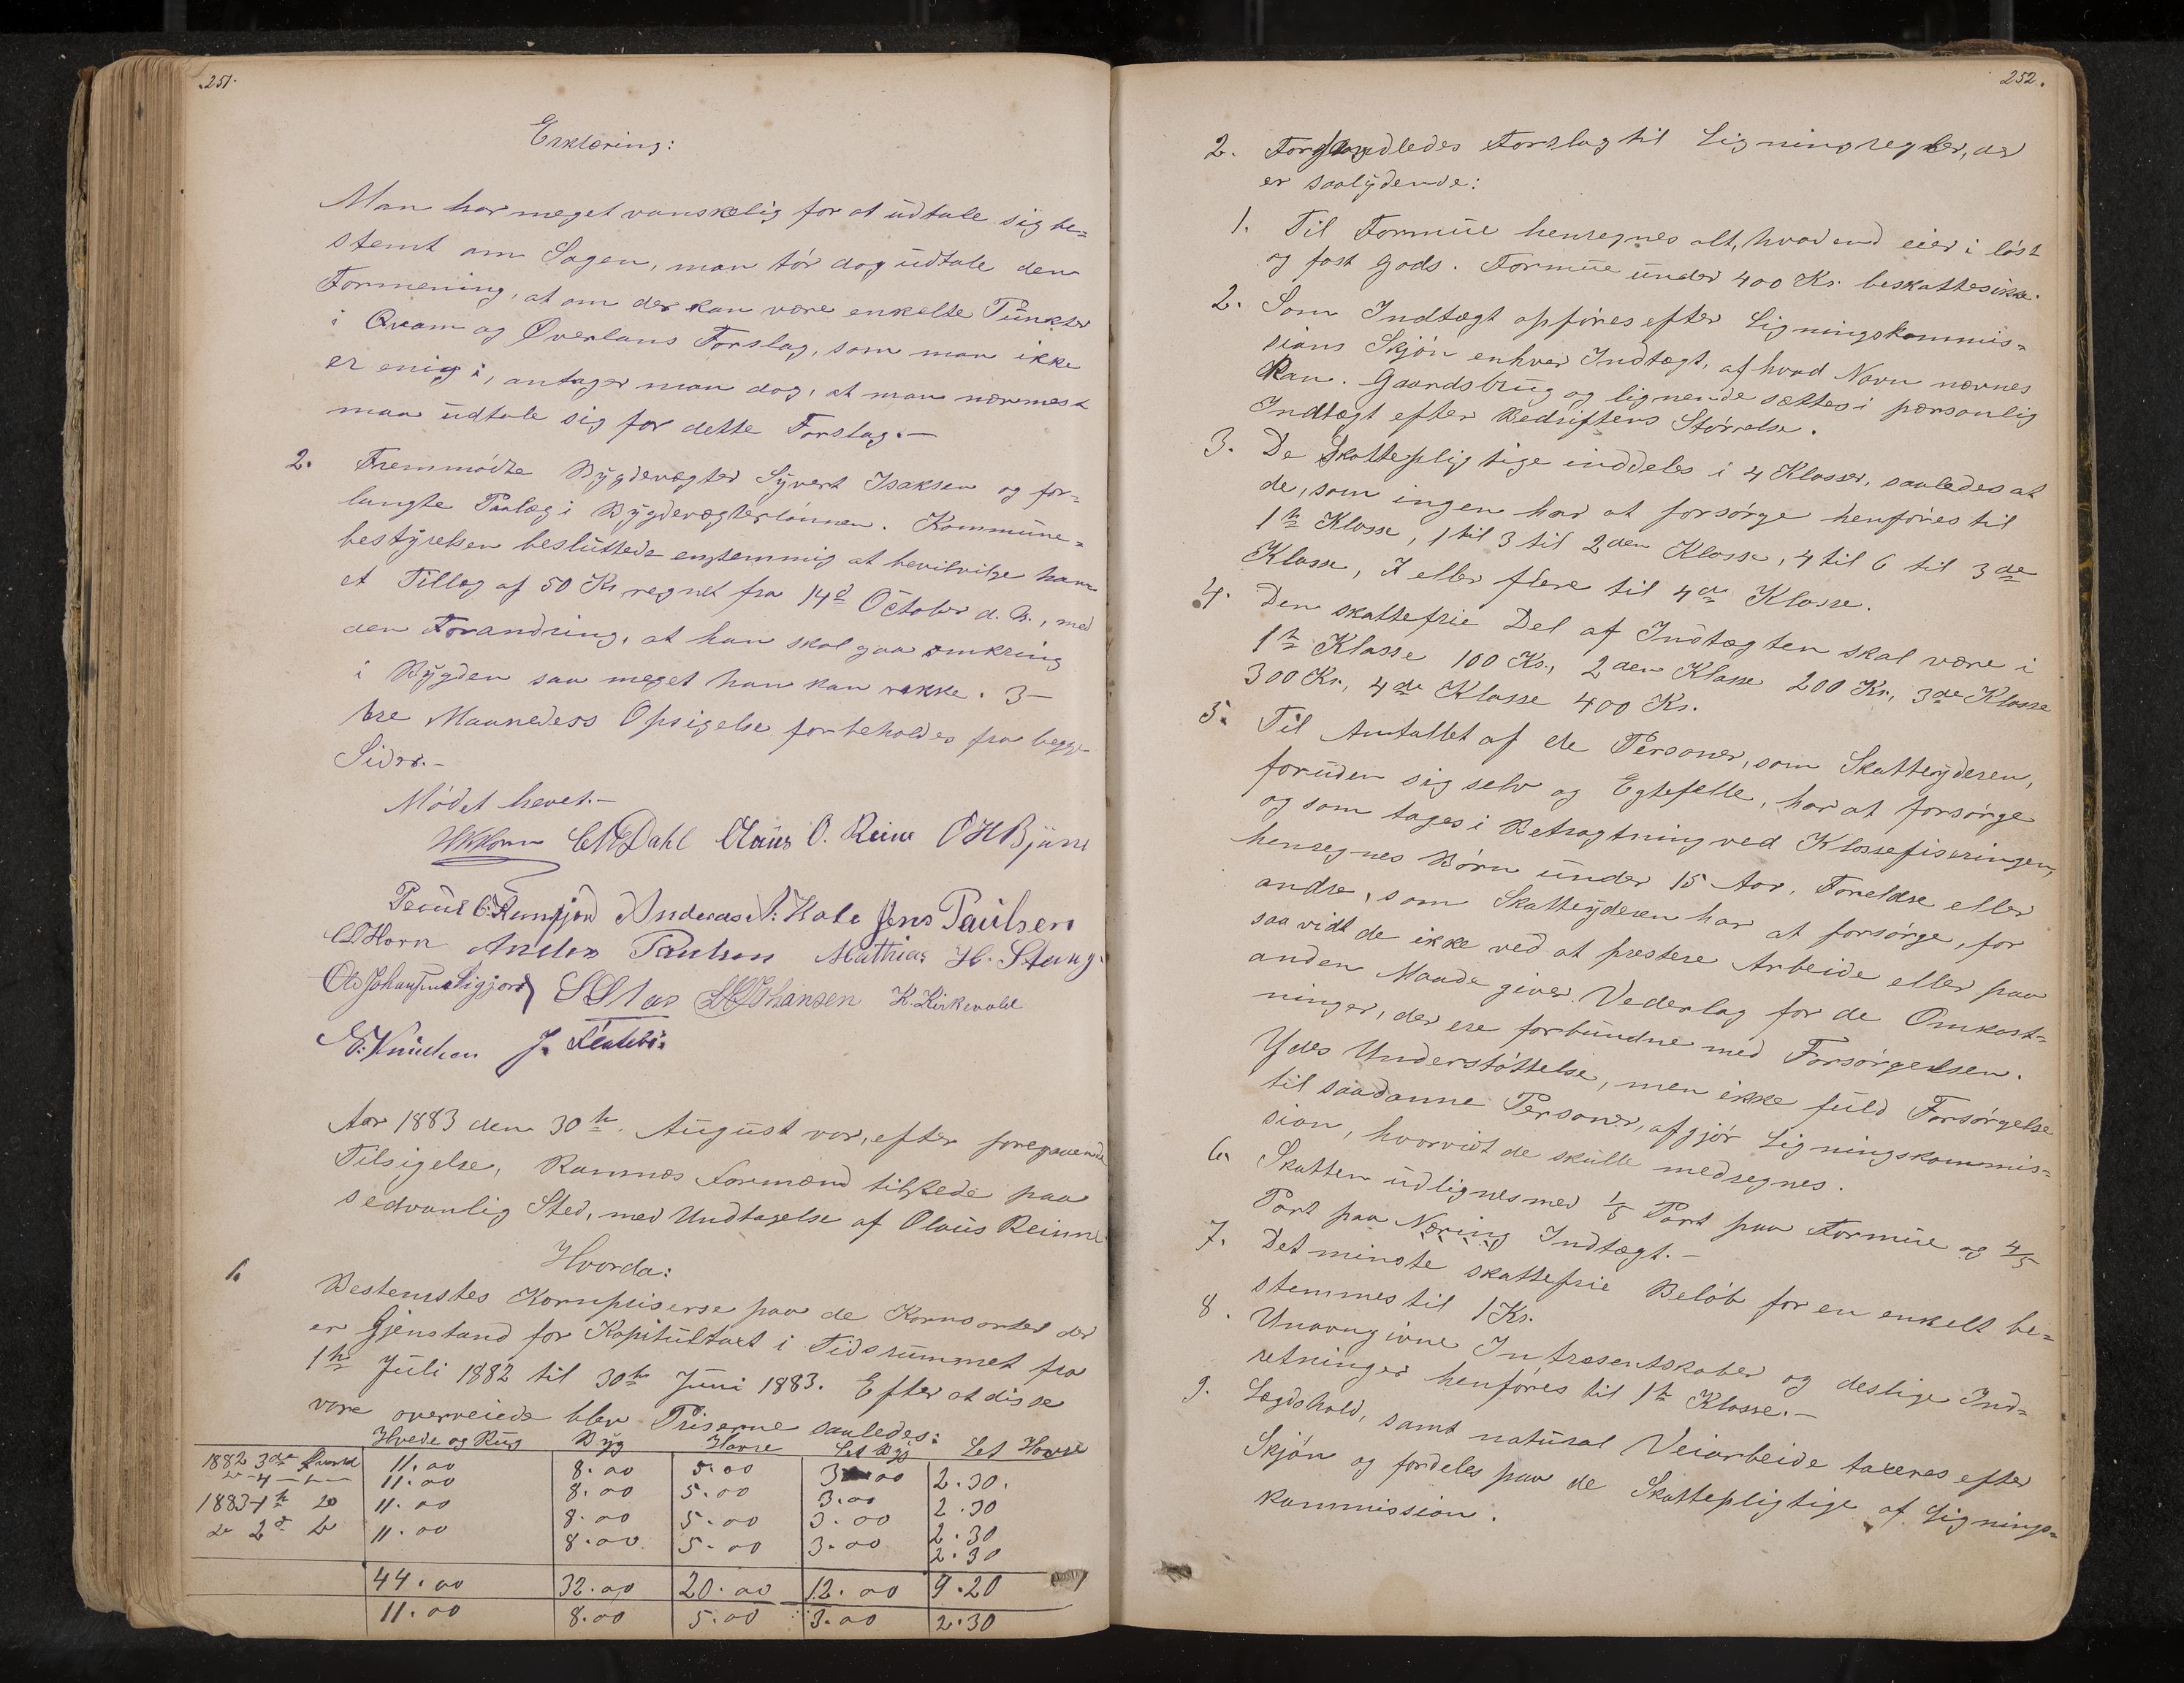 251.
Erklæring:
Man har meget vanskelig for at udtale sig be=
stemt om Sagen, man tør dog udtale den
Formening, at om der kan være enkelte Punkter
i Qvam og Øverlans Forslag, som man ikke
er enig i, antager man dog, at man nærmest
maa udtale sig for dette Forslag.—
2. Fremmødte Bygdevægter Syvert Isaksen og for=
langte Paalæg i Bygdevægterlønnen. Kommune=
bestyrelsen besluttede enstemmig at bevilvilge ham
et Tillæg af 50 Kr regnet fra 14d October d. A., med
den Forandring, at han skal gaa omkring
i Bygden saa meget han kan rekke. 3—
tre Maanedess Opsigelse forbeholdes fra begge
Sider.—
Mødet hevet.—
HKHorn Dahl Olaus O. Reine OHBjune
Andreas N. Kale Jens Paulsen
Horn Anders Paulsen Mathias H. Stang.
Ole Johansen Sigjord Johansen K. Kirkevold
E. Knudsen J.
Aar 1883 den 30te August var, efter foregaaende
Tilsigelse, Ramnæs Formænd tilstede paa
sedvanlig Sted, med Undtagelse af Olaus Reinne
Hvorda:
1. Bestemtes Kornpriserne paa de Kornsorter der
er Gjenstand for Kapitultaxt i Tidsrummet fra
1te Juli 1882 til 30te Juni 1883. Efter at disse
vare overveiede blev Priserne saaledes:
Hvede og Rug Byg Havre Let Byg Let Havre
1882 3die Kvartal 11.00 8.00 5.00 3.00 2.30.
" 4 — " — 11.00 8.00 5.00 3.00 2.30
1883 1te do 11.00 8.00 5.00 3.00 2.30
do 2d do 11.00 8.00 5.00 3.00 2.30
44.00 32.00 20.00 12.00 9.20
11.00 8.00 5.00 3.00 2.30
252.
2. Forhandledes Forslag til Ligningsregler, der
er saalydende:
1. Til Formue henregnes alt, hvad end eier i løst
og fast Gods. Formue under 400 Kr. beskattes ikke.
2. Som Indtægt opføres efter Ligningskommis=
sions Skjøn enhver Indtægt, af hvad Navn nævnes
kan. Gaardsbrug og lignende sættes i personlig
Indtægt efter Bedriftens Størrelse.
3. De Skattepligtige inddeles i 4 Klasser, saaledes at
de, som ingen har at forsørge henføres til
1te Klasse, 1 til 3 til 2den Klasse, 4 til 6 til 3de
Klasse, 7 eller flere til 4de Klasse.
4. Den skattefrie Del af Indtægten skal være i
1te Klasse 100 Kr., 2den Klasse 200 Kr., 3de Klasse
300 Kr., 4de Klasse 400 Kr.
5. Til Antallet af de Personer, som Skatteyderen,
foruden sig selv og Egtefelle, har at forsørge
og som tages i Betragtning ved Klassefiseringen,
henregnes Børn under 15 Aar. Foreldre eller
andre, som Skatteyderen har at forsørge, for
saavidt de ikke ved at præstere Arbeide eller paa
anden Maade giver Vederlag for de Omkost=
ninger, der ere forbundne med Forsørgelsen.
Ydes Understøttelse, men ikke fuld Forsørgelse
til saadanne Personer, afgjør Ligningskommis=
sion, hvorvidt de skulle medregnes.
6. Skatten udlignes med 1/5 Part paa Formue og 4/5
Part paa Næring Indtægt.—
7. Det minste skattefrie Beløb for en enkelt be=
stemmes til 1 Kr.
8. Unavngivne Intresentskaber og deslige Ind=
retninger henføres til 1te Klasse.—
9. Lægdshold, samt natural Veiarbeide taxeres efter
Skjøn og fordeles paa de Skattepligtige af Lignings=
kommission.